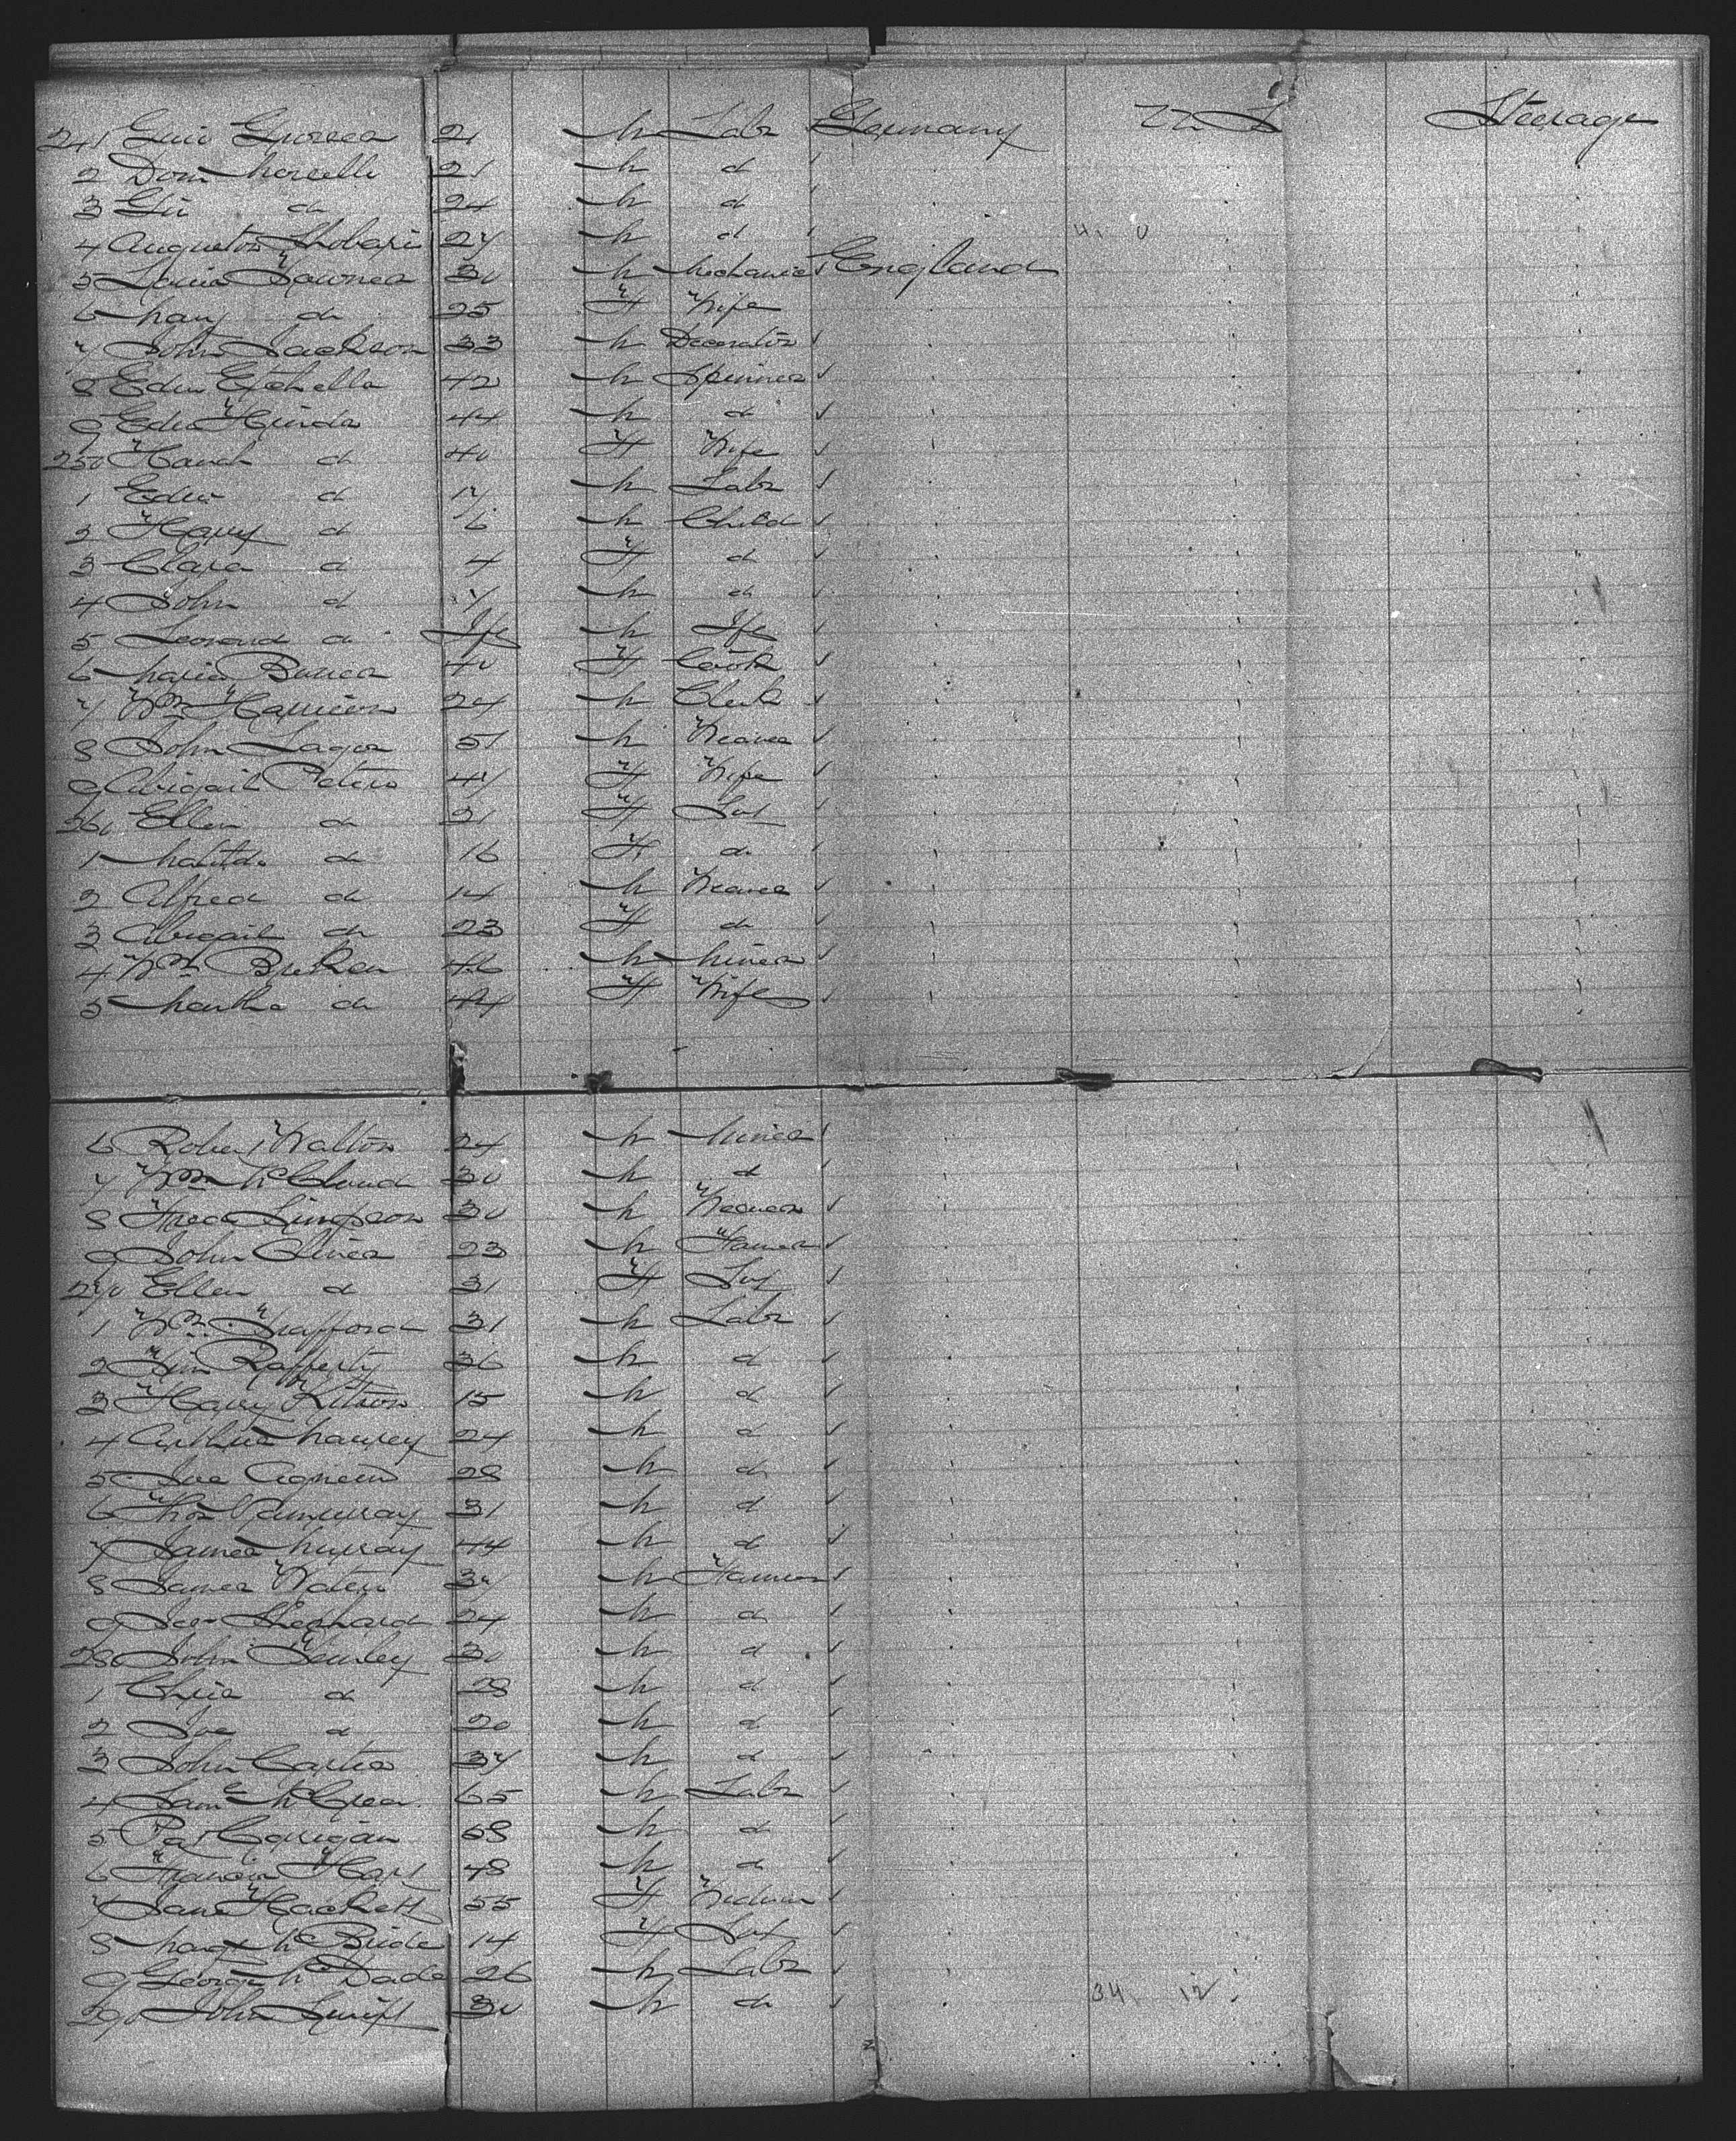 241 21 M Labr Germany U S Steerage
2 Dom Morelli 21 M d
3 do 24 M d
4 27 M d 4 0
5 Louis 30 M Mechanic England
6 Mary do 25 F Wife
7 John Jackson 33 M Decorator
8 Edw Etchells 42 M Spinner
9 Edw Hinds 44 M d
250 Hanah do 40 F Wife
1 Edw d 17 M Labr
2 Harry d 6 M Child
3 Clara d 4 F d
4 John d 7 M do
5 Leonard do Inft M Inft
6 Maria 40 F Cook
7 Wm Harrison 24 M Clerk
8 John 51 M Weaver
9 Abigail Peters 47 F Wife
260 Ellen do 21 F Svt
1 Matilda do 16 F do
2 Alfred do 14 M Weaver
3 Abigail do 23 F do
4 Wm 46 M Miner
5 Martha do 44 F Wife
6 Robert Walton 24 M Miner
7 Wm McCloud 30 M d
8 Fred Simpson 30 M Weaver
9 John 23 M Farmer
270 Ellen d 21 F Svt
1 Wm Trafford 31 M Labr
2 Jim Rafferty 36 M d
3 Harry Kitson 15 M d
4 Arthur 24 M d
5 Jos Agnew 28 M d
6 Thos 31 M d
7 James Murray 44 M d
8 James Waters 37 M Farmer
9 Shephard 24 M d
280 John 30 M d
1 Chris d 28 M d
2 Jos d 20 M d
3 John Carter 37 M d
4 Saml McCrea 65 M Labr
5 Pat Corrigan 58 M d
6 Francis Hart 48 M d
7 Jane Hackett 55 F Widow
8 Magt McBride 14 F Svt
9 George McDade 26 M Labr
290 John Swift 30 M do 34 12